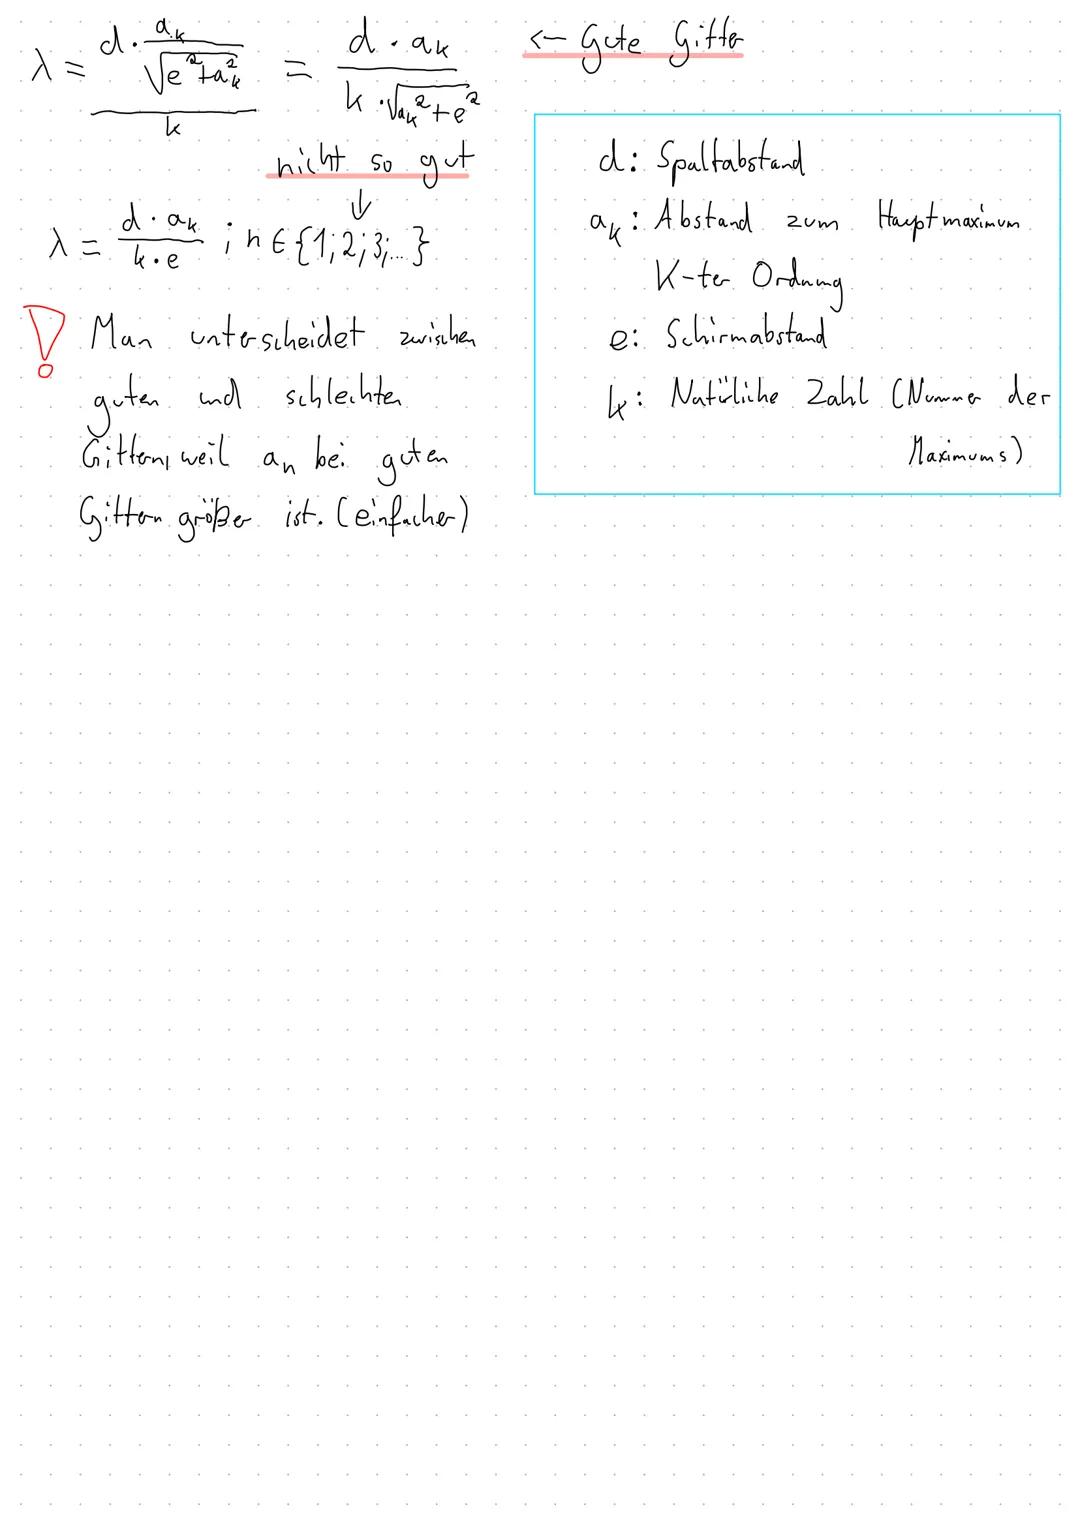 λ = (d · a_k / √(e² + a_k²)) / k = d · a_k / (k · √(a_k² + e²)) <- Gute Gitter
nicht so gut
↓
λ = d · a_k / (k · e) ; n ∈ {1; 2; 3; ...}
! Man unterscheidet zwischen
guten und schlechten
Gittern, weil a_n bei guten
Gittern größer ist. (einfacher)
d: Spaltabstand
a_k: Abstand zum Hauptmaximum
K-ter Ordnung
e: Schirmabstand
k: Natürliche Zahl (Nummer der
Maximums)